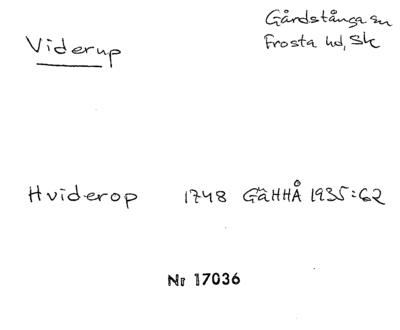 Viderup
Gårdstånga sn
Frosta hd, Sk
Hviderop 1748 GäHHÅ 1935:62
Nr 17036